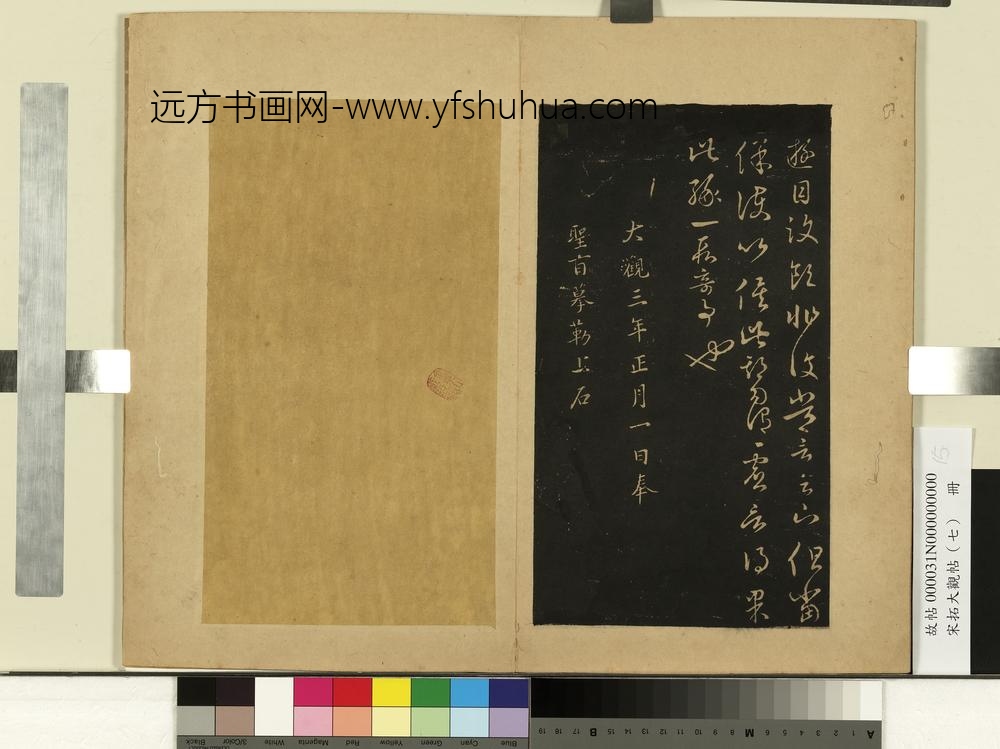 远方书画网-www.yfshuhua.com
遊目汶領非復常言足下但當
保護以俟此期勿謂虛言得果
此緣一段奇事也
大觀三年正月一日奉
聖旨摹勒上石
故帖 000031N000000000
宋拓大觀帖(七) 冊
15
Blue Cyan Green Yellow Red Magenta White 3/Color Black
A 1 2 3 4 5 6 M 8 9 10 11 12 13 14 15 B 17 18 19